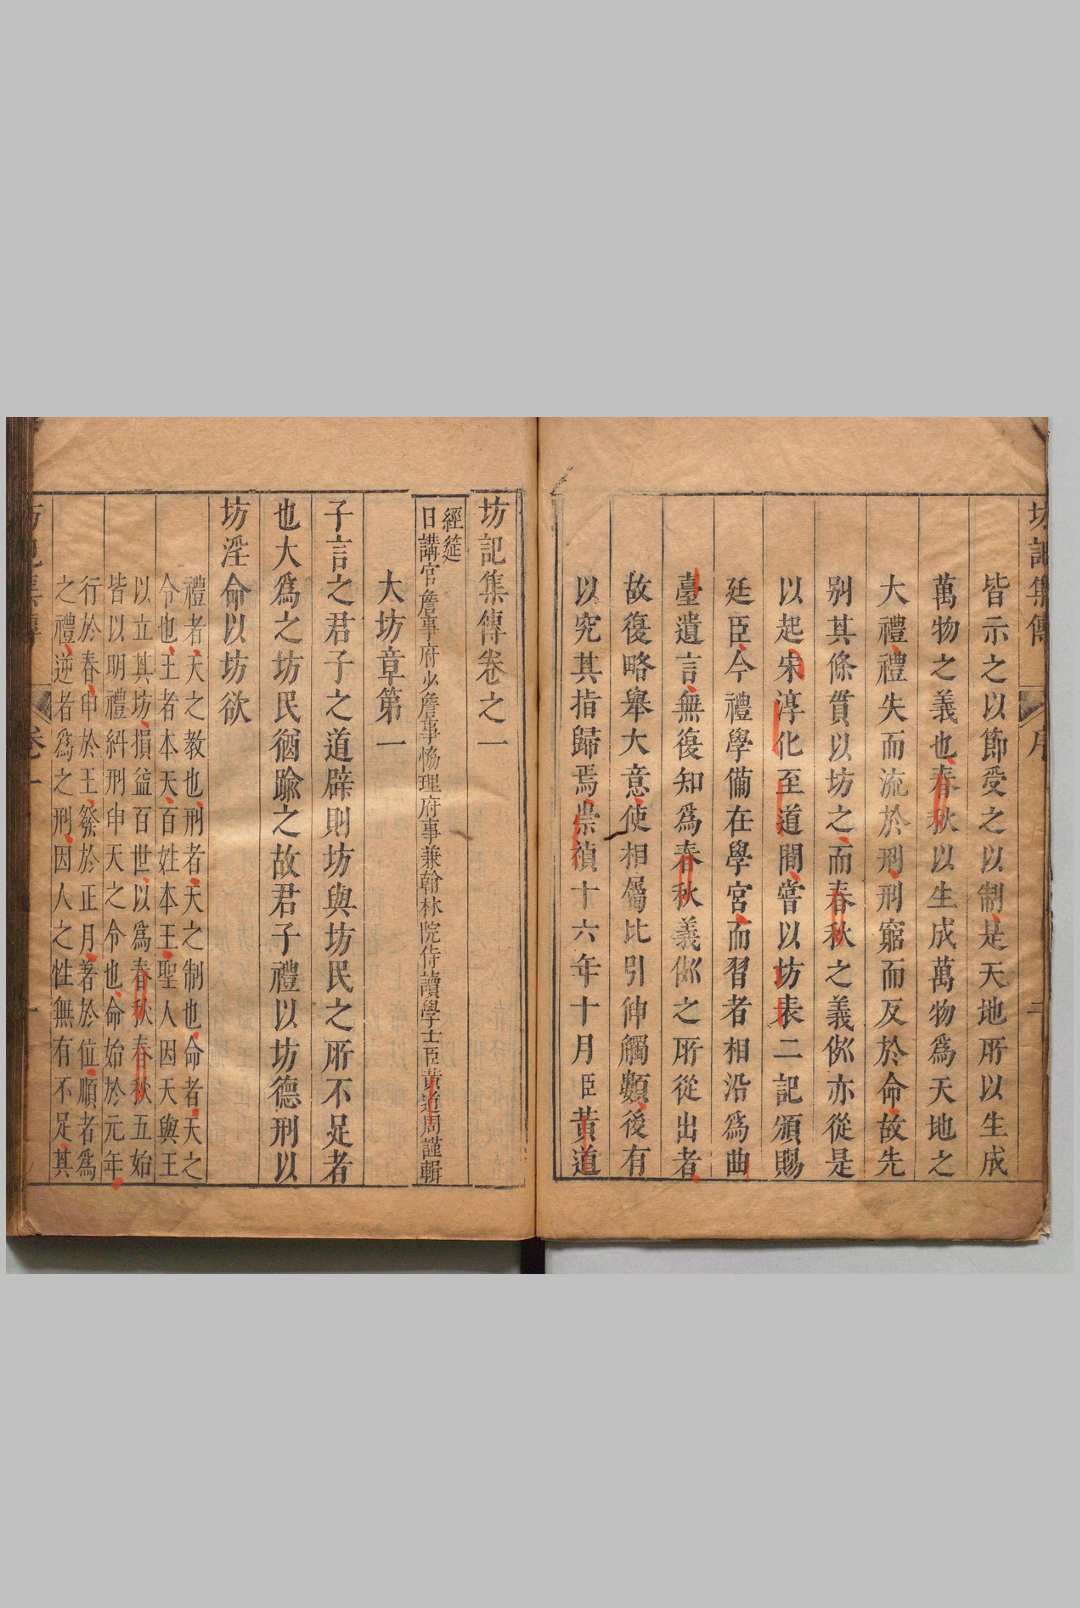 坊記集傳 序 二
皆示之以節受之以制是天地所以生成
萬物之義也春秋以生成萬物為天地之
大禮禮失而流於刑刑窮而反於命故先
別其條貫以坊之而春秋之義倣亦從是
以起宋淳化至道間嘗以坊表二記頒賜
廷臣今禮學備在學宮而習者相沿為曲
臺遺言無復知為春秋義倣之所從出者
故復略舉大意使相屬比引伸觸類後有
以究其指歸焉崇禎十六年十月臣黃道
坊記集傳卷之一
經筵
日講官詹事府少詹事協理府事兼翰林院侍讀學士臣黃道周謹輯
大坊章第一
子言之君子之道辟則坊與坊民之所不足者
也大為之坊民猶踰之故君子禮以坊德刑以
坊淫命以坊欲
禮者天之教也刑者天之制也命者天之
令也王者本天百姓本王聖人因天與王
以立其坊損益百世以為春秋春秋五始
皆以明禮糾刑申天之令也命始於元年
行於春申於王發於正月著於位順者為
之禮逆者為之刑因人之性無有不足其
坊記集傳 卷一 一